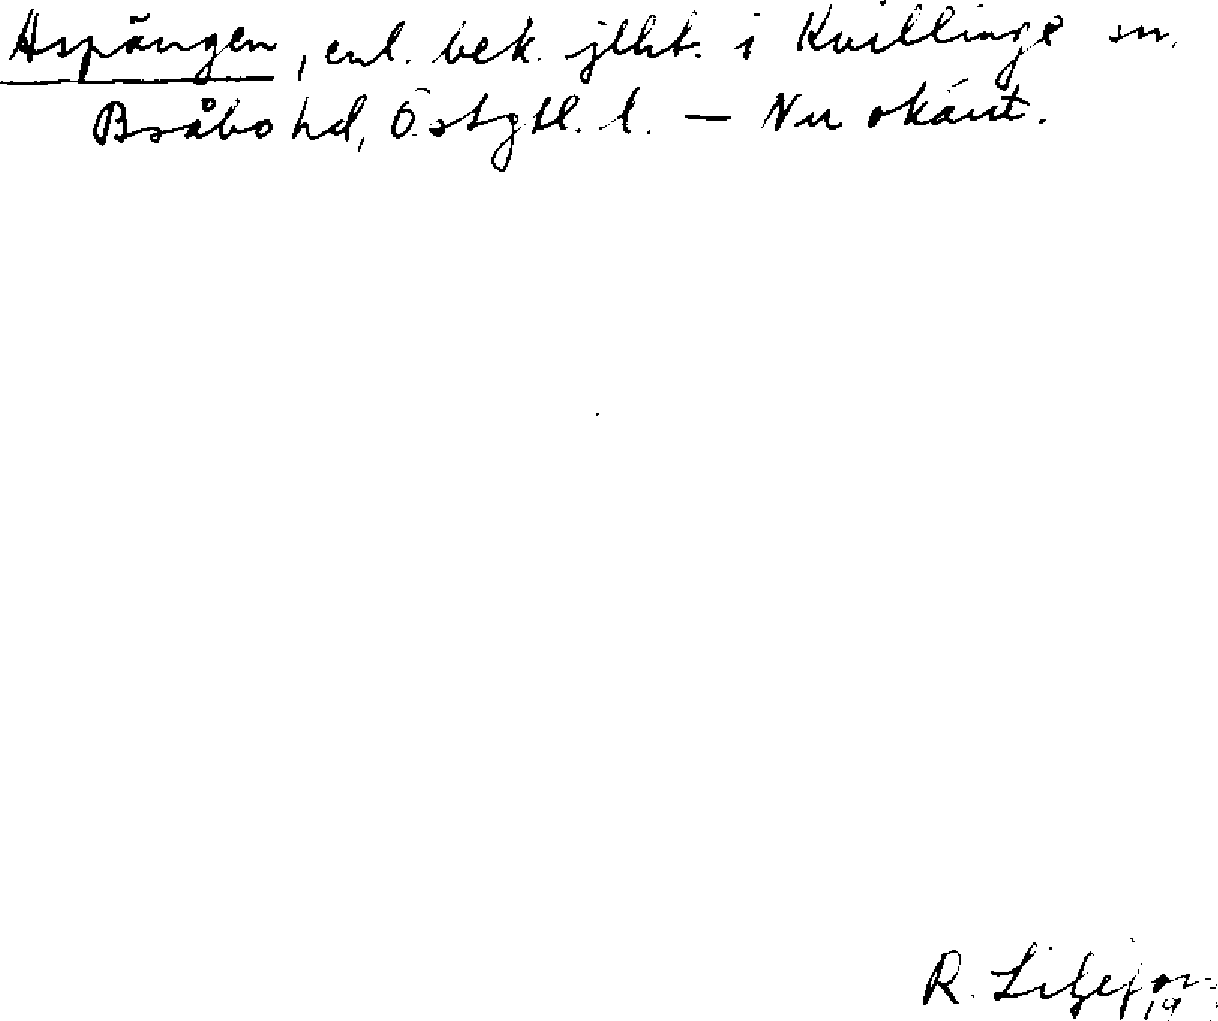 Aspängen, enl. bek. jlht. i Kvillinge sn.
Bråbo hd, Östgtl. l. — Nu okänt.
R. Liljefor
19